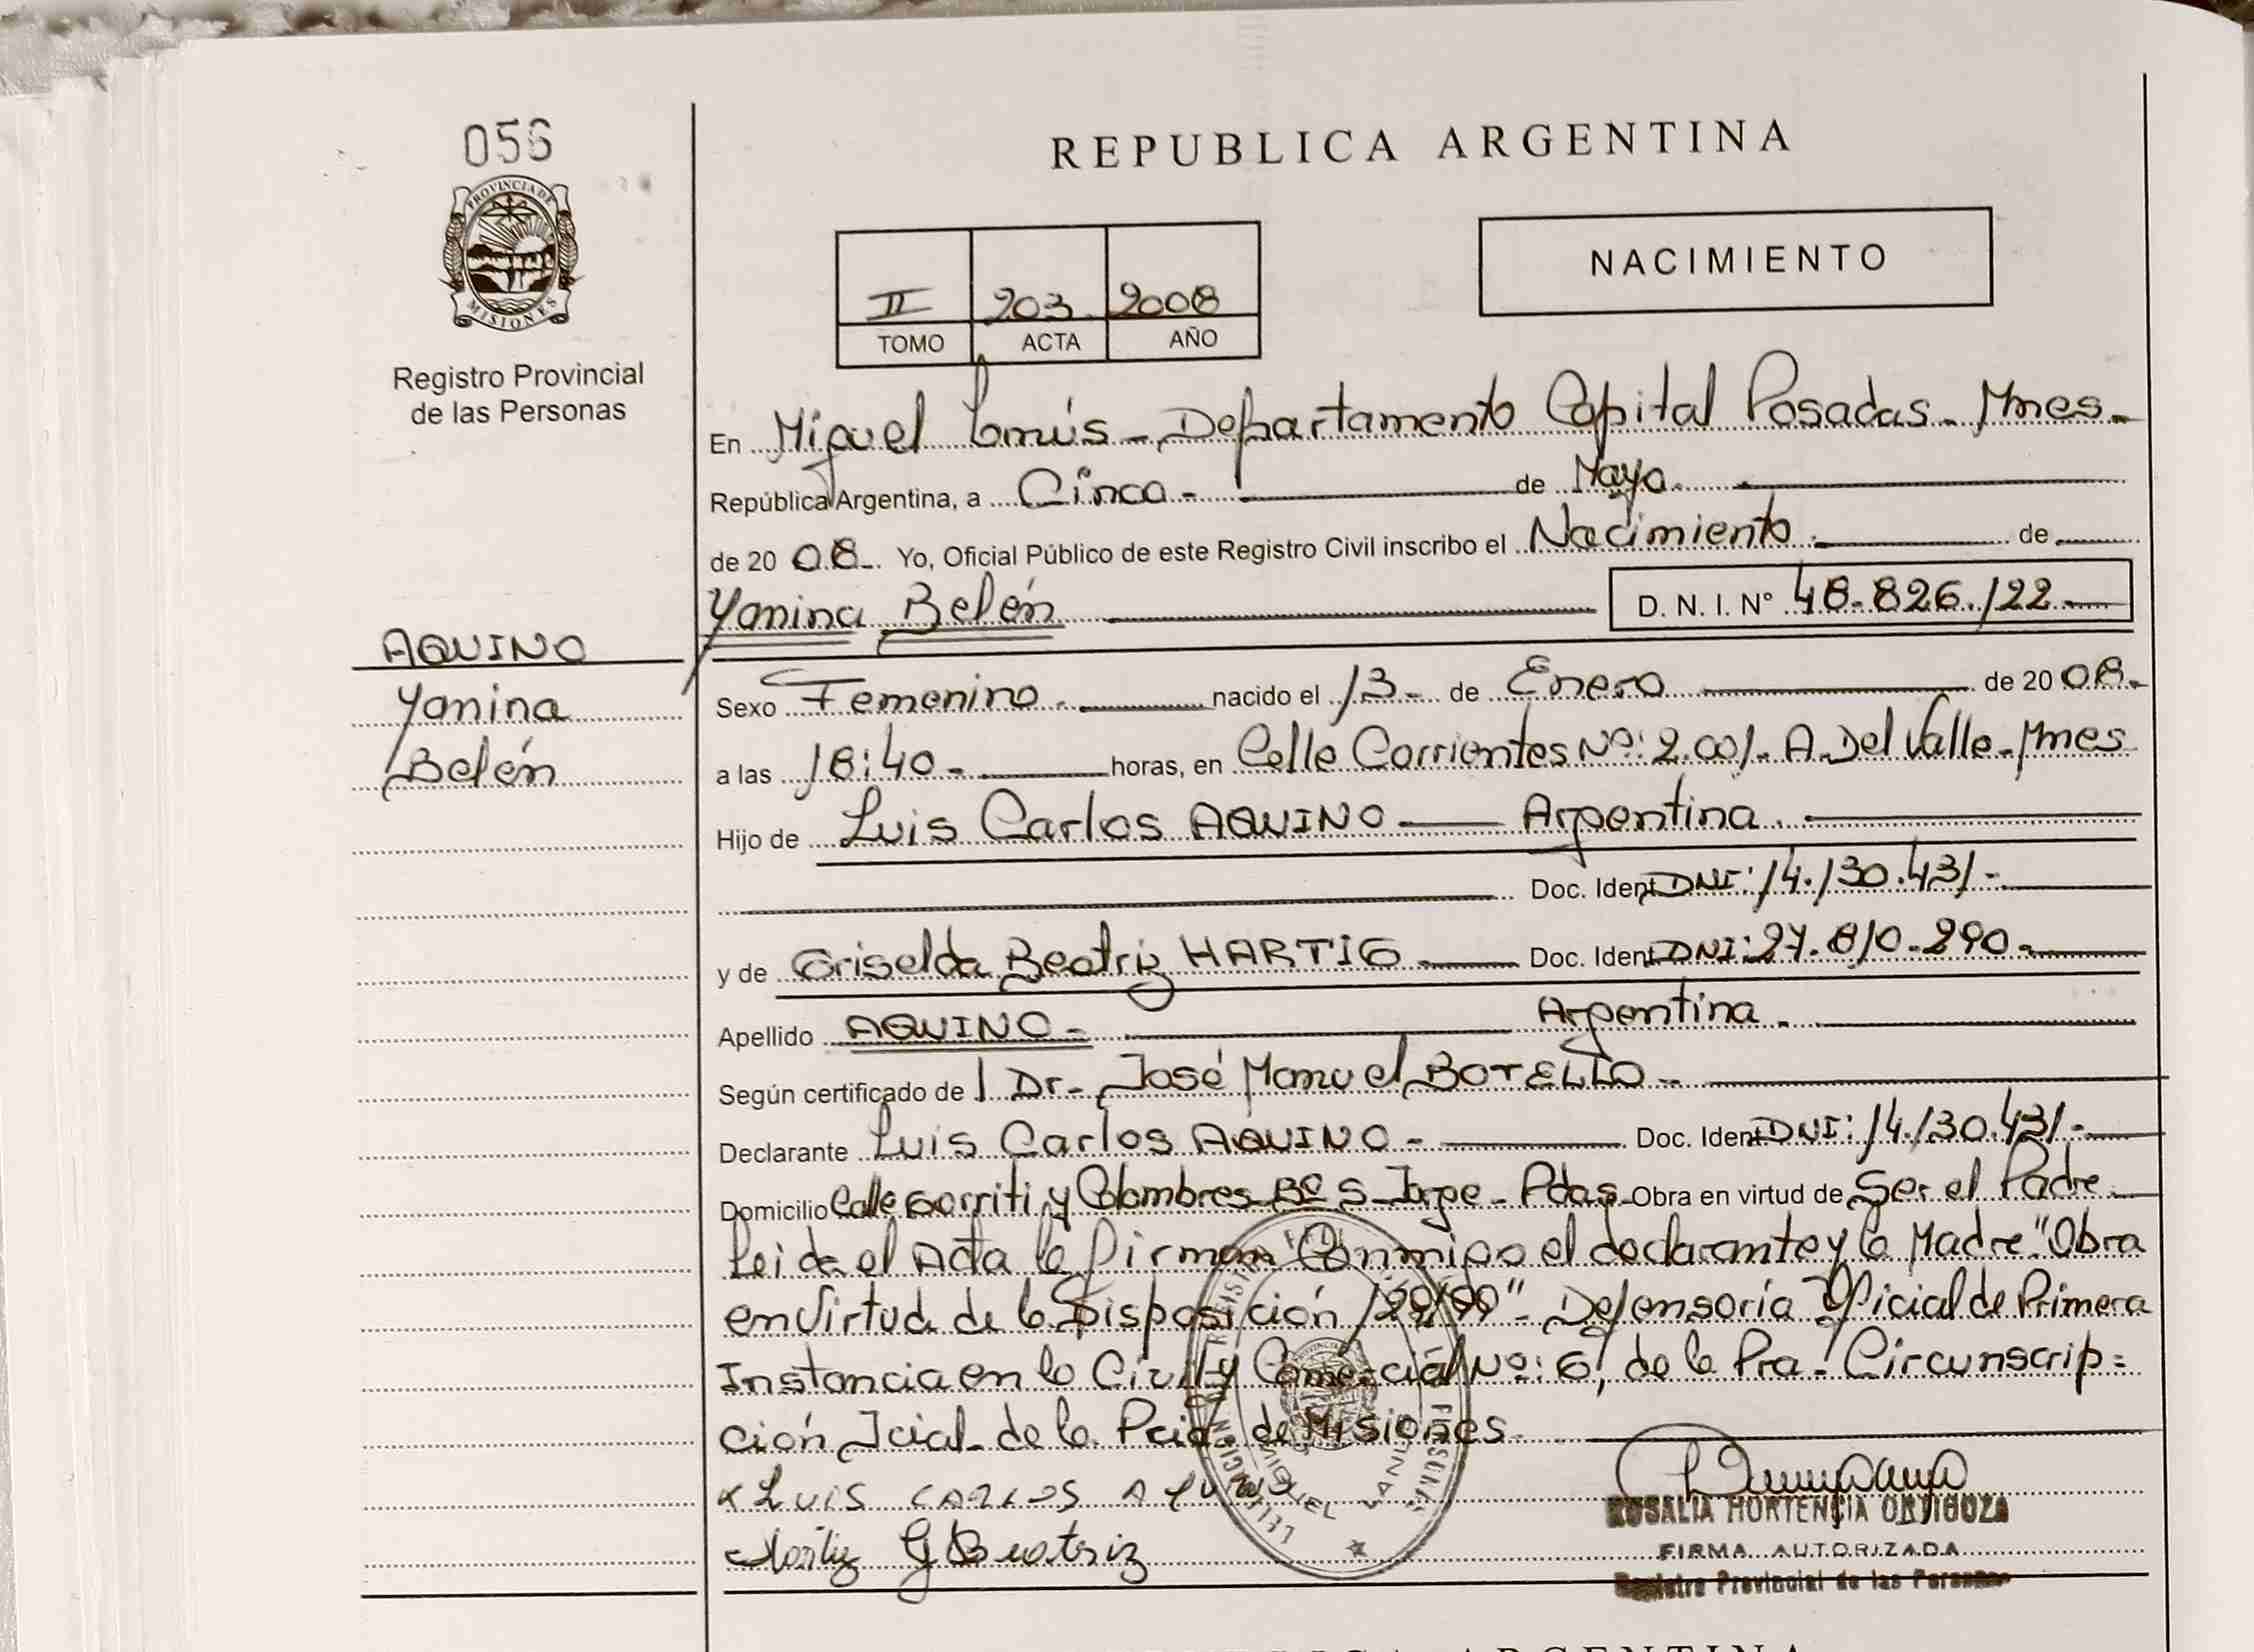 056
PROVINCIA DE
MISIONES
Registro Provincial
de las Personas
AQUINO
Yanina
Belén
REPUBLICA ARGENTINA
NACIMIENTO
II 203 2008
TOMO ACTA AÑO
En Miguel Lanús - Departamento Capital Posadas - Mnes -
República Argentina, a Cinco - de Mayo
de 20 08 . Yo, Oficial Público de este Registro Civil inscribo el Nacimiento - de
Yanina Belén D. N. I. Nº 48.826.122
Sexo Femenino nacido el 13 - de Enero de 20 08.
a las 18:40 - horas, en Calle Corrientes Nº: 2.001 - A. Del Valle - Mnes
Hijo de Luis Carlos AQUINO Argentina
Doc. Ident DNI: 14.130.431 -
y de Griselda Beatriz HARTIG Doc. Ident DNI: 27.810.290 -
Apellido AQUINO - Argentina
Según certificado de l Dr - José Manuel BOTELLO -
Declarante Luis Carlos AQUINO - Doc. Ident DNI: 14.130.431 -
Domicilio Calle Gorriti y Colombres Bº S. Jorge - Pdas Obra en virtud de Ser el Padre
Leida el Acta la firman Conmigo el declarante y la Madre "Obra
en Virtud de la Disposición 129/99" - Defensoría Oficial de Primera
Instancia en lo Civil y Comercial Nº: 6, de la Pra - Circunscrip=
ción Jcial - de la Pcia de Misiones
x LUIS CARLOS AQUINO
G Beatriz
ROSALIA HORTENCIA ORTIGOZA
FIRMA AUTORIZADA
Registro Provincial de las Personas
REPUBLICA ARGENTINA